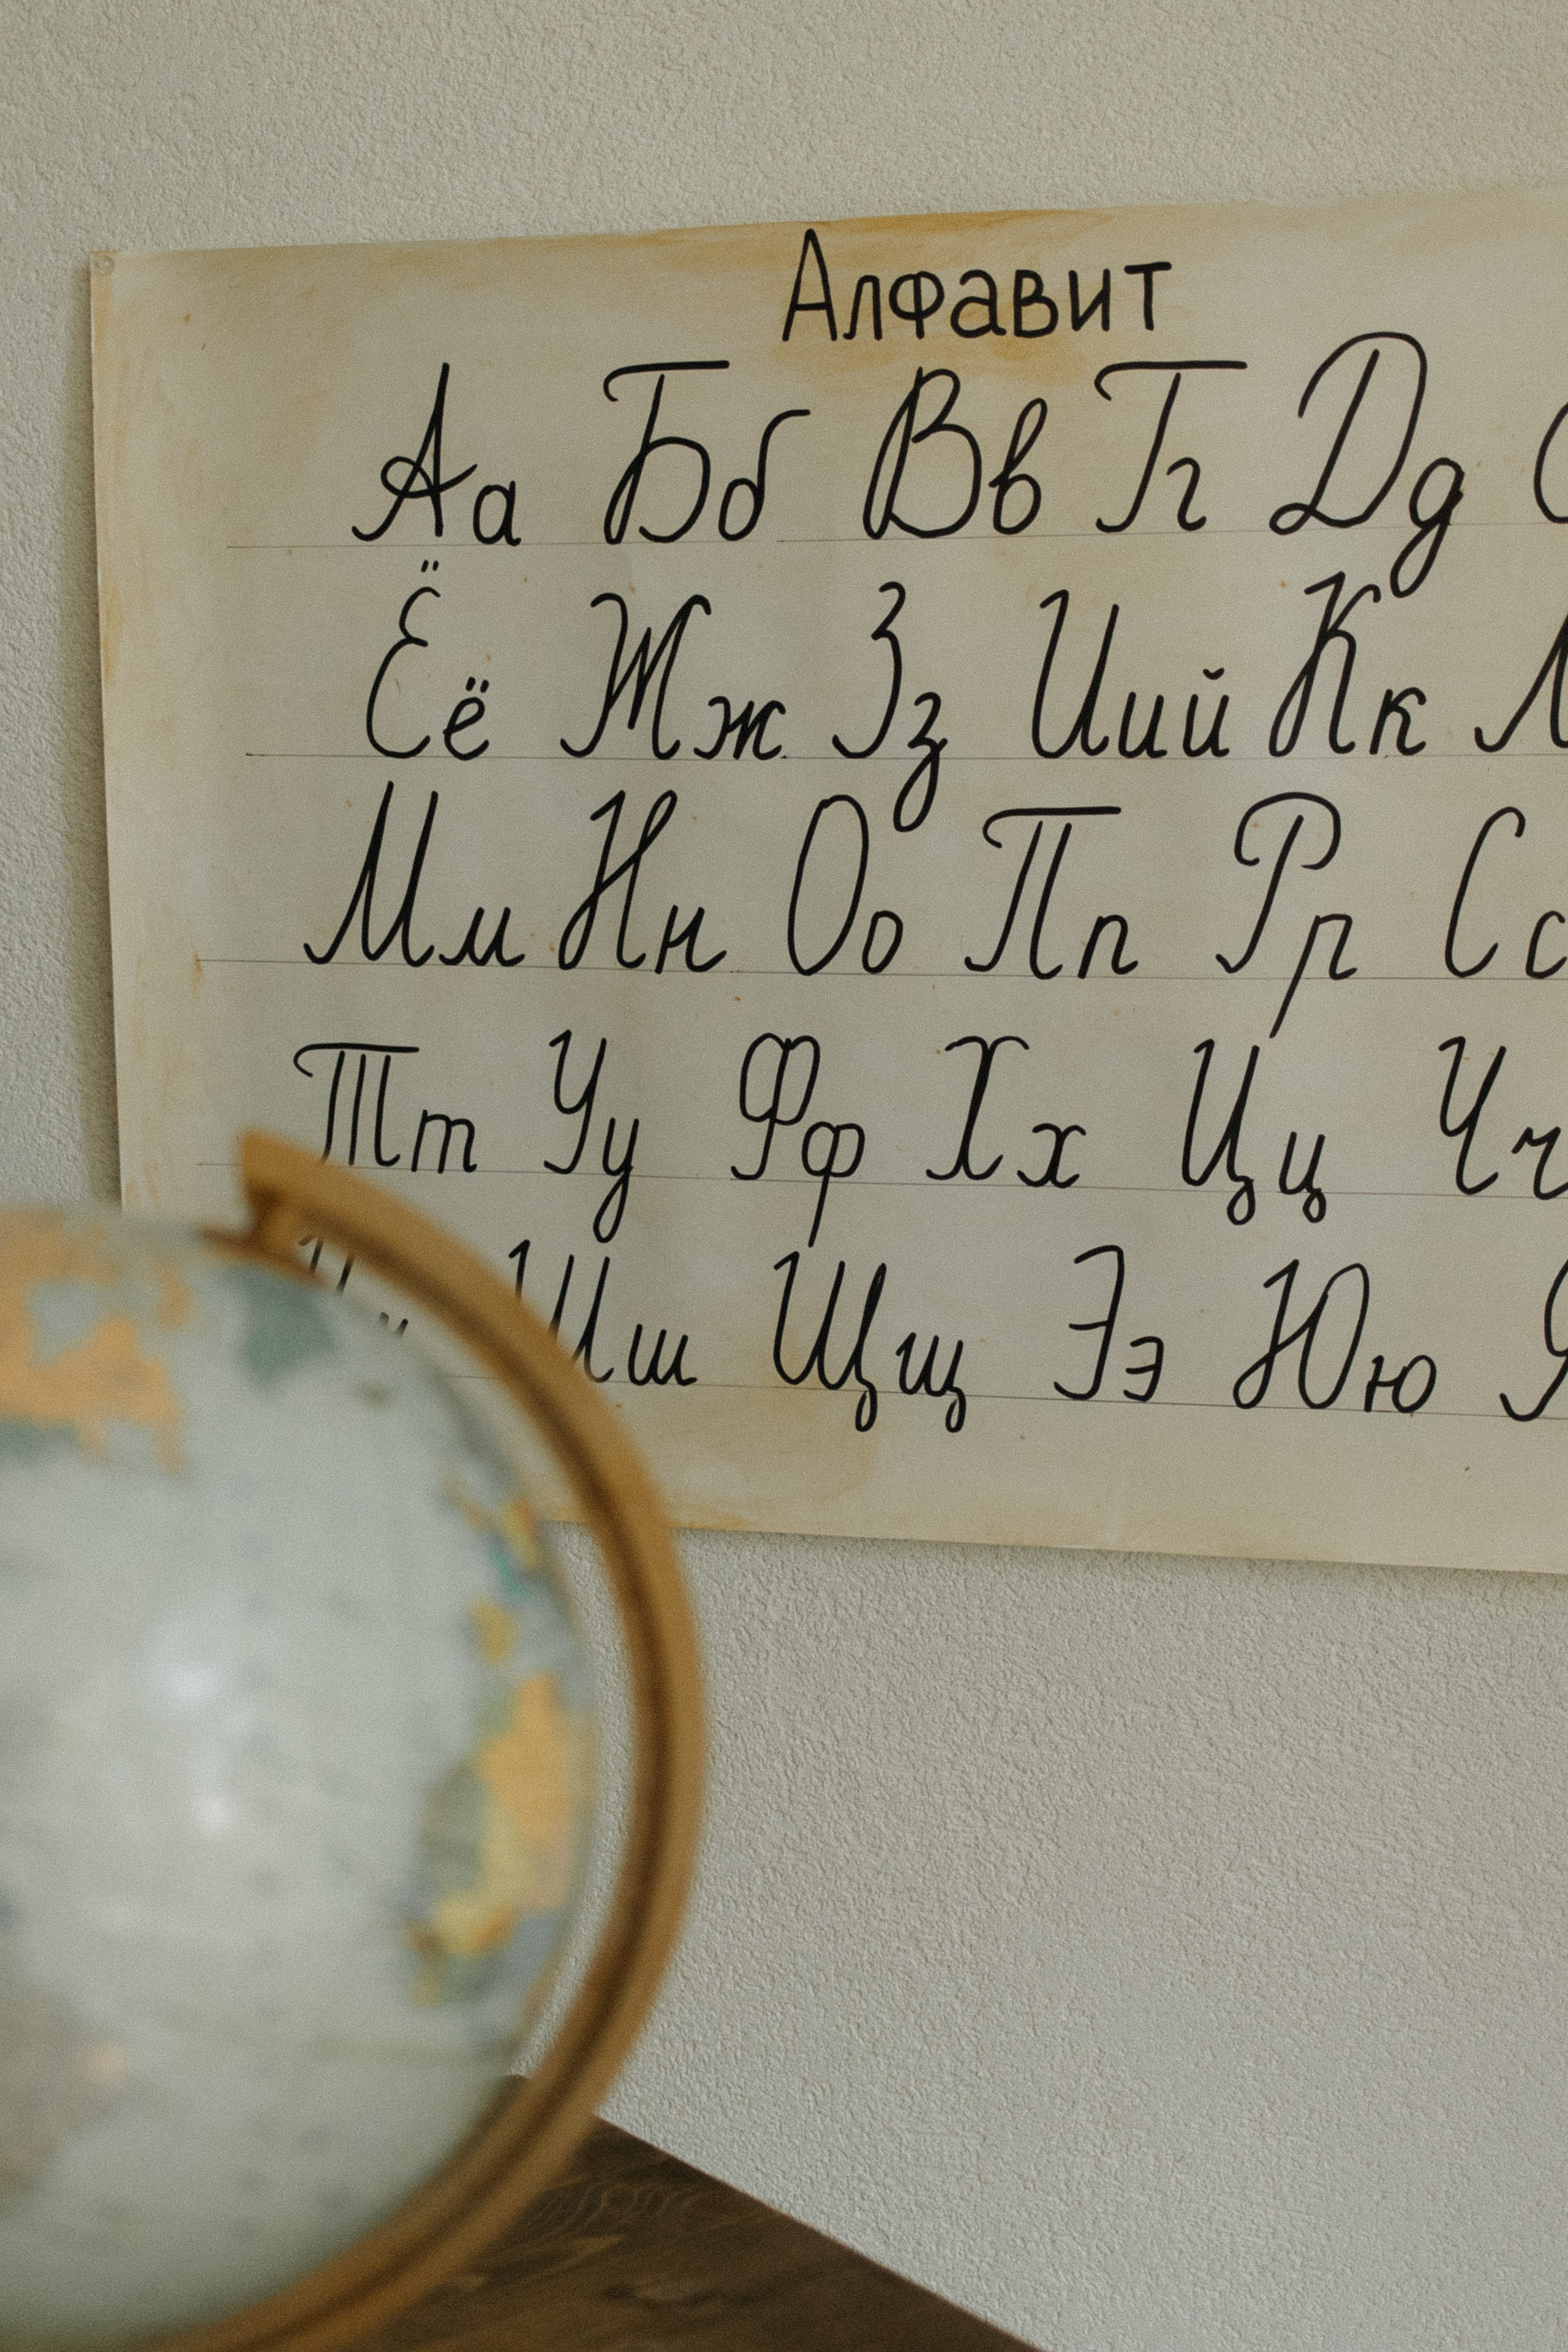 Алфавит
Аа Бб Вв Гг Дд
Ёё Жж Зз Иий Кк Л
Мм Нн Оо Пп Рр Сс
Тт Уу Фф Хх Цц Чч
Шш Щщ Ээ Юю Я